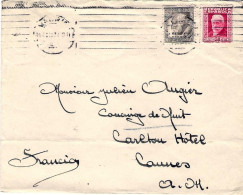 Monsieur Julien Augier
Concierge de Nuit
Carlton Hôtel
Francia Cannes
A. M.